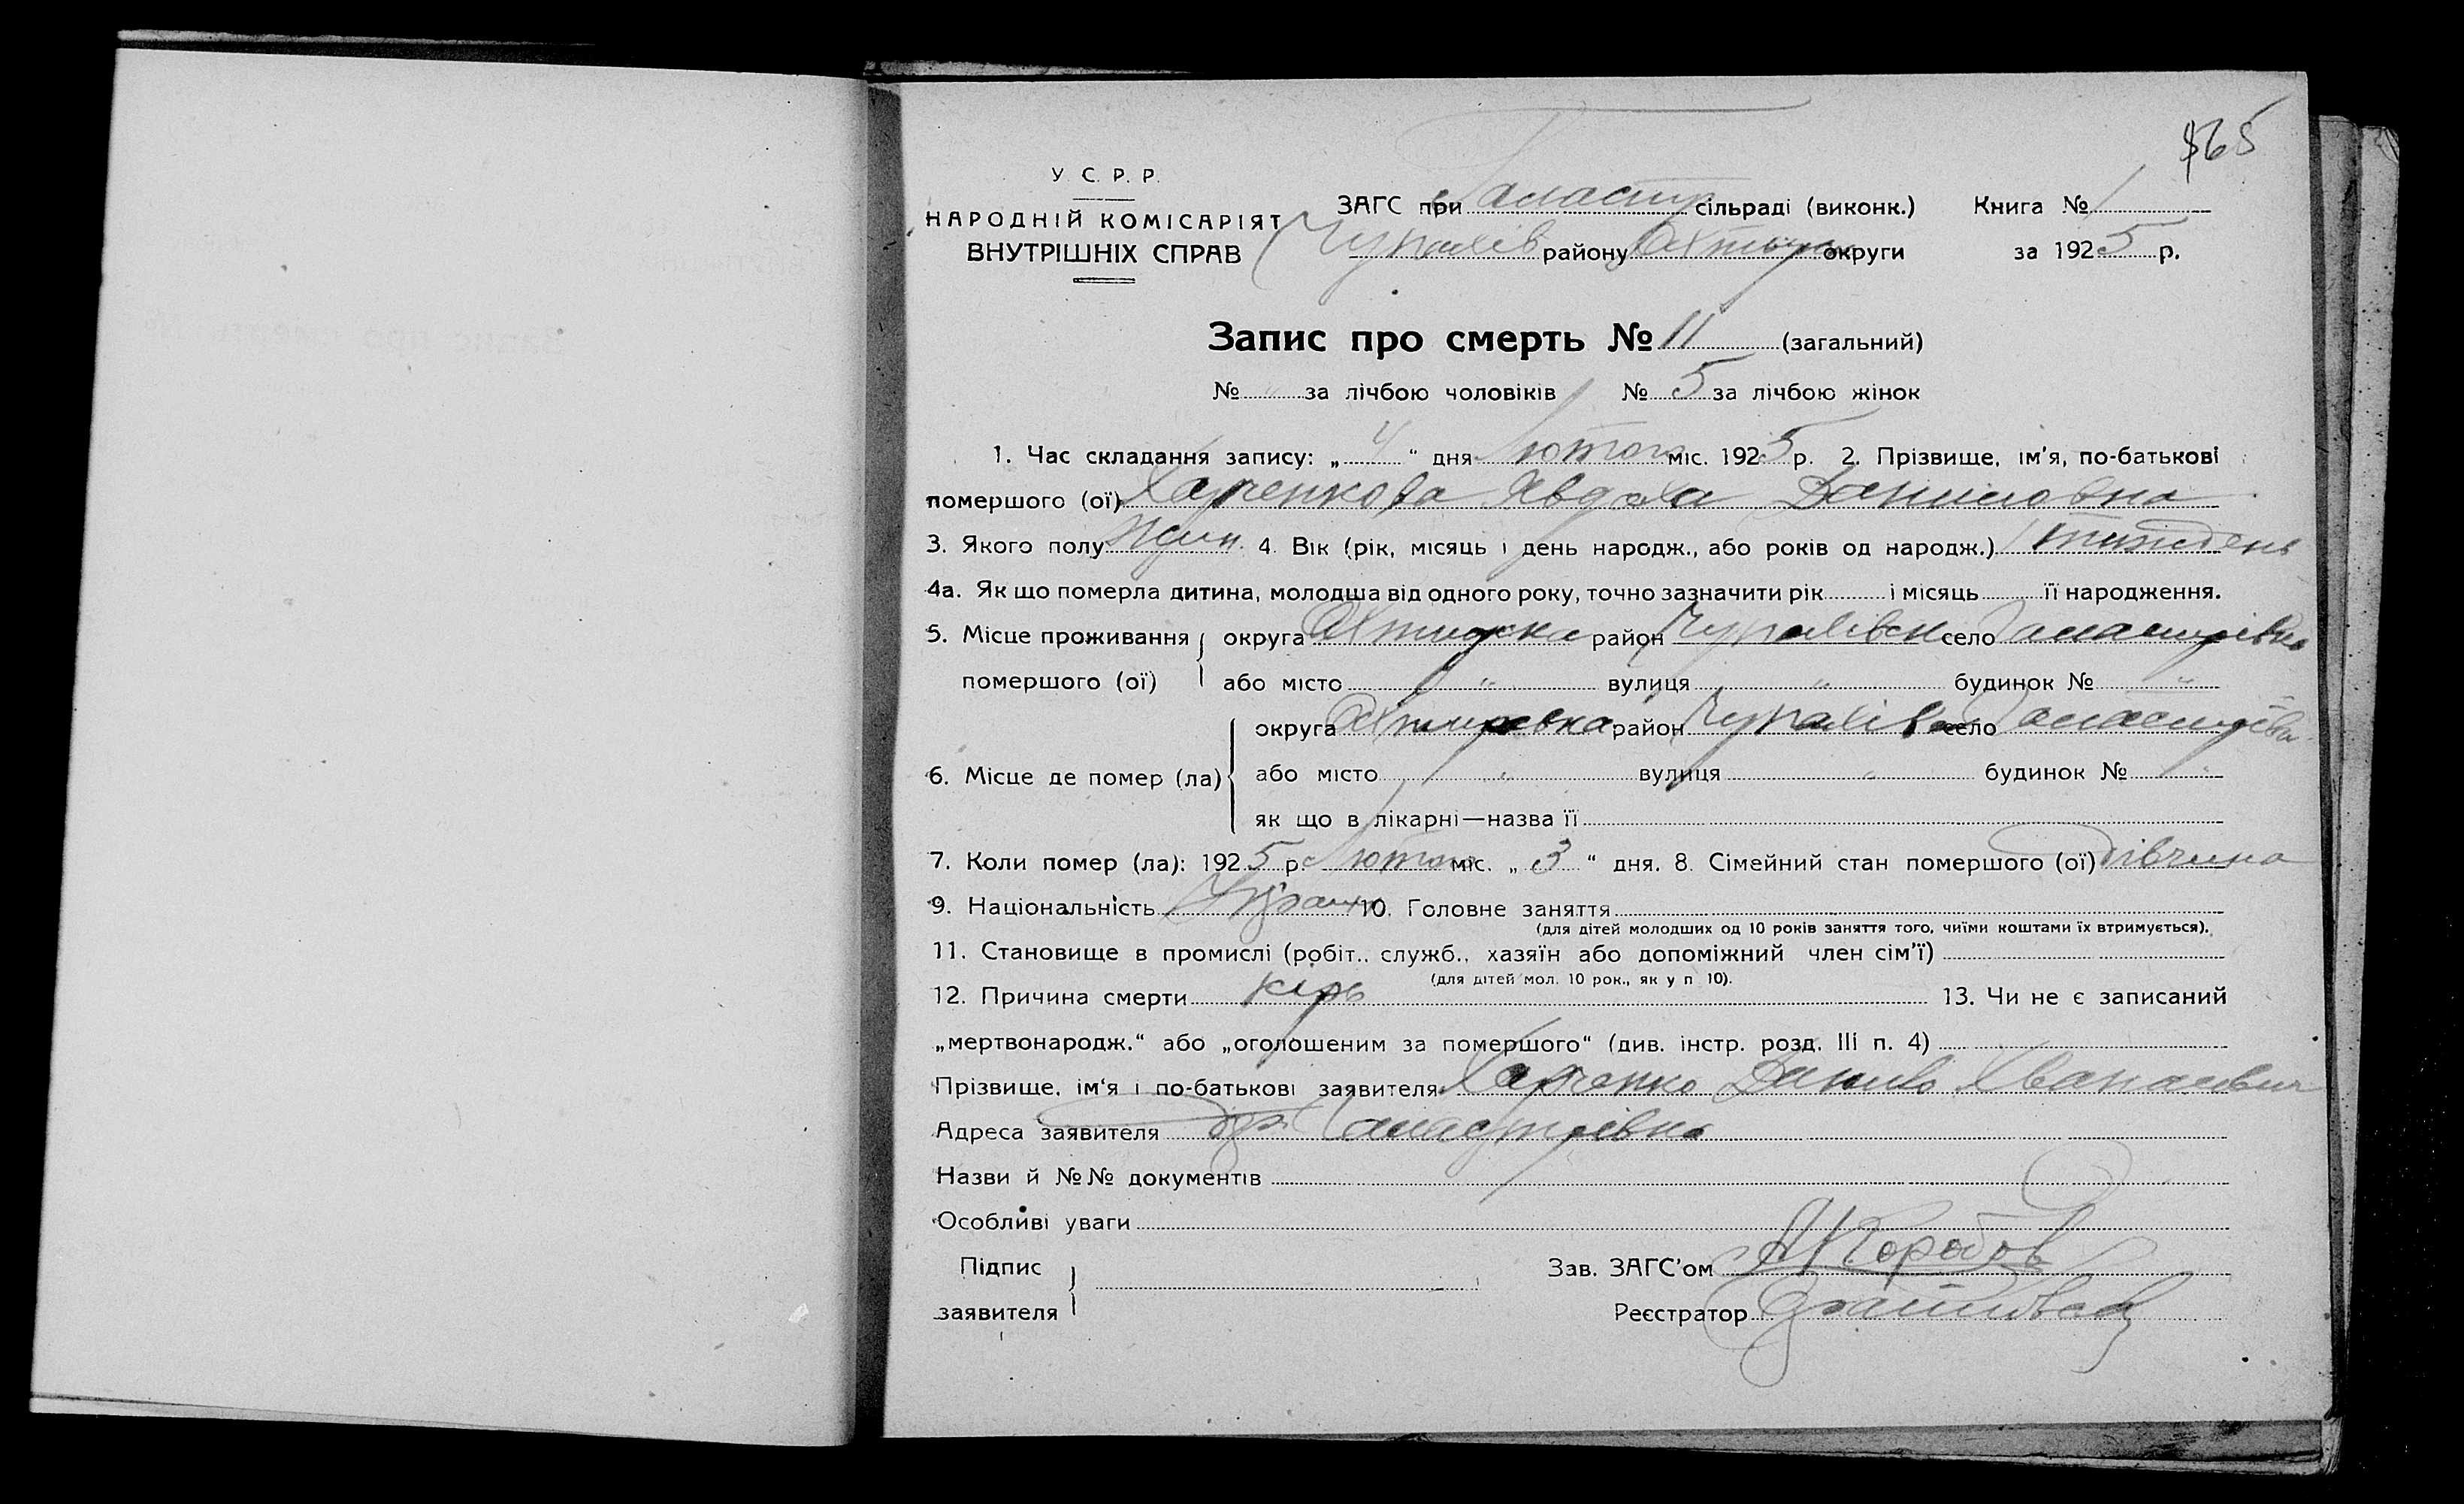 $65
У. С. Р. Р.
НАРОДНІЙ КОМІСАРІЯТ
ВНУТРІШНІХ СПРАВ
ЗАГС при сільраді (виконк.) Книга № 1
Чупахів району Охтирк округи за 1925 р.
Запис про смерть № 11 (загальний)
№ " за лічбою чоловіків № 5 за лічбою жінок
1. Час складання запису: „ 4 “ дня Лютого міс. 1925 р. 2. Прізвище, ім'я, по-батькові
помершого (ої) Харченкова Явдоха Даниловна
3. Якого полу жін. 4. Вік (рік, місяць і день народж., або років од народж.) 1 тиждень
4а. Як що померла дитина, молодша від одного року, точно зазначити рік і місяць її народження.
5. Місце проживання округа Охтирка район Чупахівськ село
помершого (ої) або місто " вулиця " будинок № "
округа Охтирська район Чупахівсь село
6. Місце де помер (ла) або місто " вулиця " будинок № "
як що в лікарні—назва її
7. Коли помер (ла): 1925 р. Лютого міс. „ 3 “ дня. 8. Сімейний стан помершого (ої) дівчина
9. Національність Україн 10. Головне заняття
(для дітей молодших од 10 років заняття того, чиїми коштами їх втримується).
11. Становище в промислі (робіт., служб., хазяїн або допоміжний член сім'ї)
(для дітей мол. 10 рок., як у п 10).
12. Причина смерти кірь 13. Чи не є записаний
„мертвонародж.“ або „оголошеним за помершого“ (див. інстр. розд. III п. 4)
Прізвище, ім'я і по-батькові заявителя Харченко Данило
Адреса заявителя
Назви й №№ документів
Особливі уваги
Підпис
заявителя
Зав. ЗАГС'ом АКоробов
Реєстратор